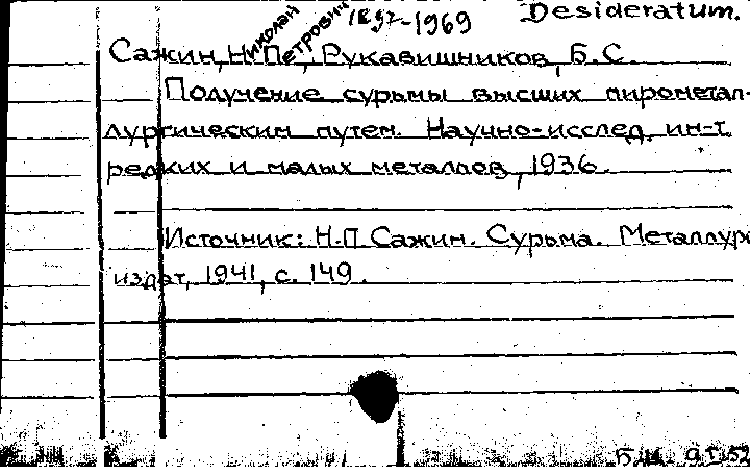 Николай Петрович 1897-1969 Desideratum.
Сажин, Н. Пе., Рукавишников, Б.С.
Получение сурьмы высших пирометал-
лургическим путем. Научно-исслед. ин-т
редких и малых металлов, 1936.
Источник: Н.П. Сажин. Сурьма. Металлург
издат, 1941, с. 149.